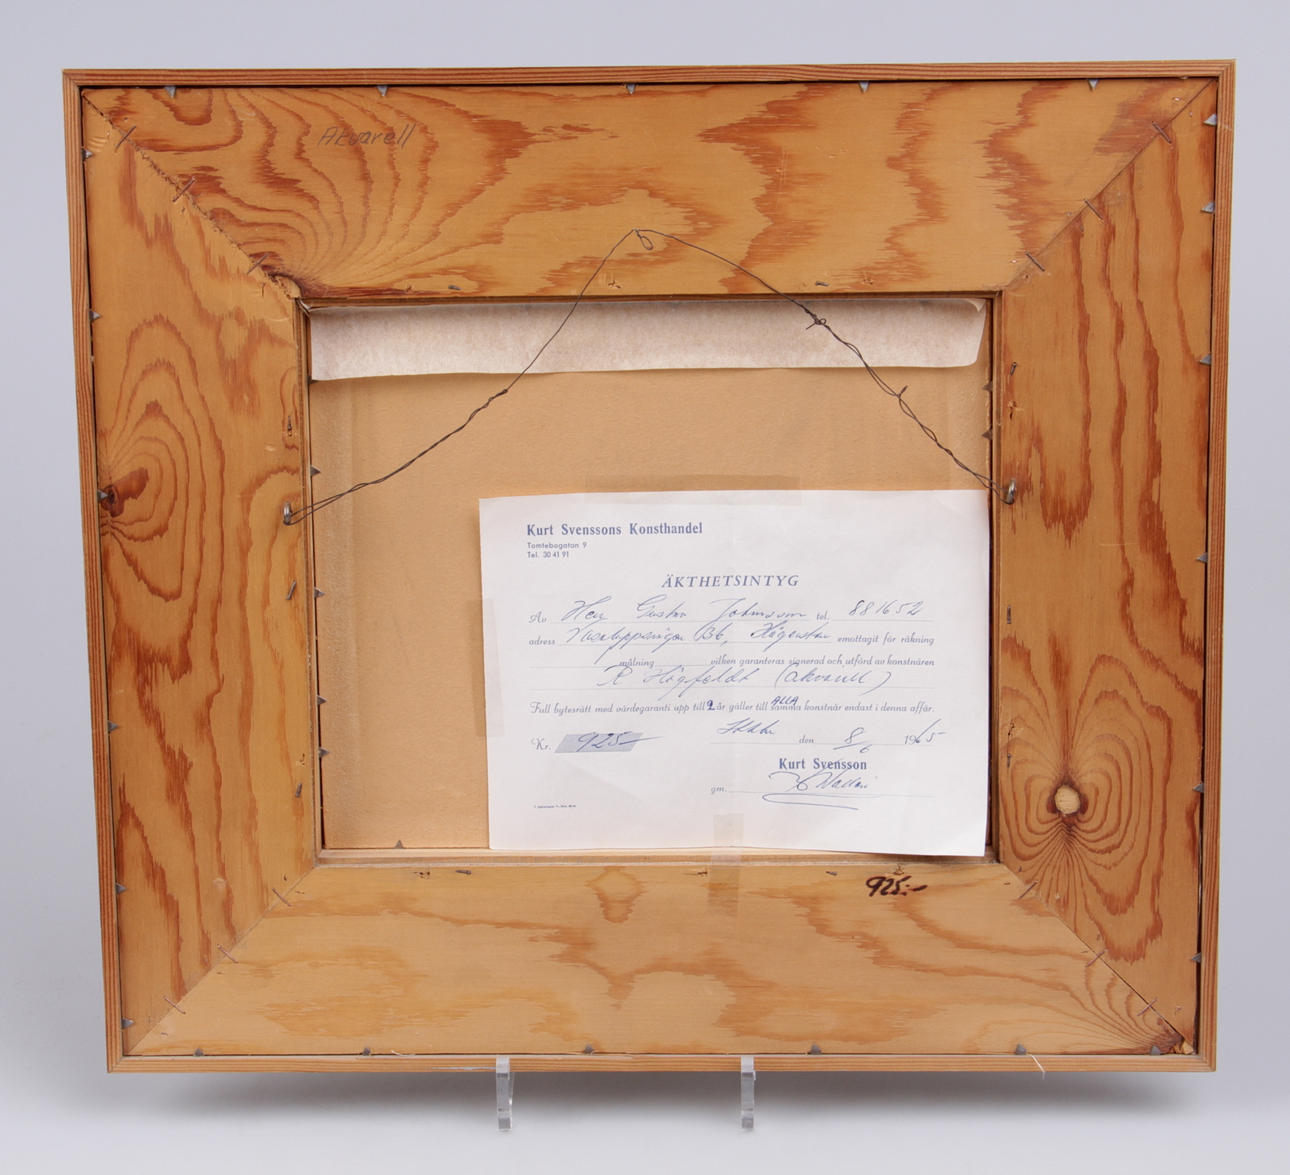 Akvarell
Kurt Svenssons Konsthandel
Tomtebogatan 9
Tel. 30 41 91
ÄKTHETSINTYG
Av Herr Gustav Johnsson tel. 881652
adress B6, Hägersten emottagit för räkning
målning vilken garanteras signerad och utförd av konstnären
R Högfeldt (akvarell)
ALLA
Full bytesrätt med värdegaranti upp till 2 år gäller till samma konstnär endast i denna affär.
Kr. 925- den 8/6 1965
Kurt Svensson
gm.
925:-